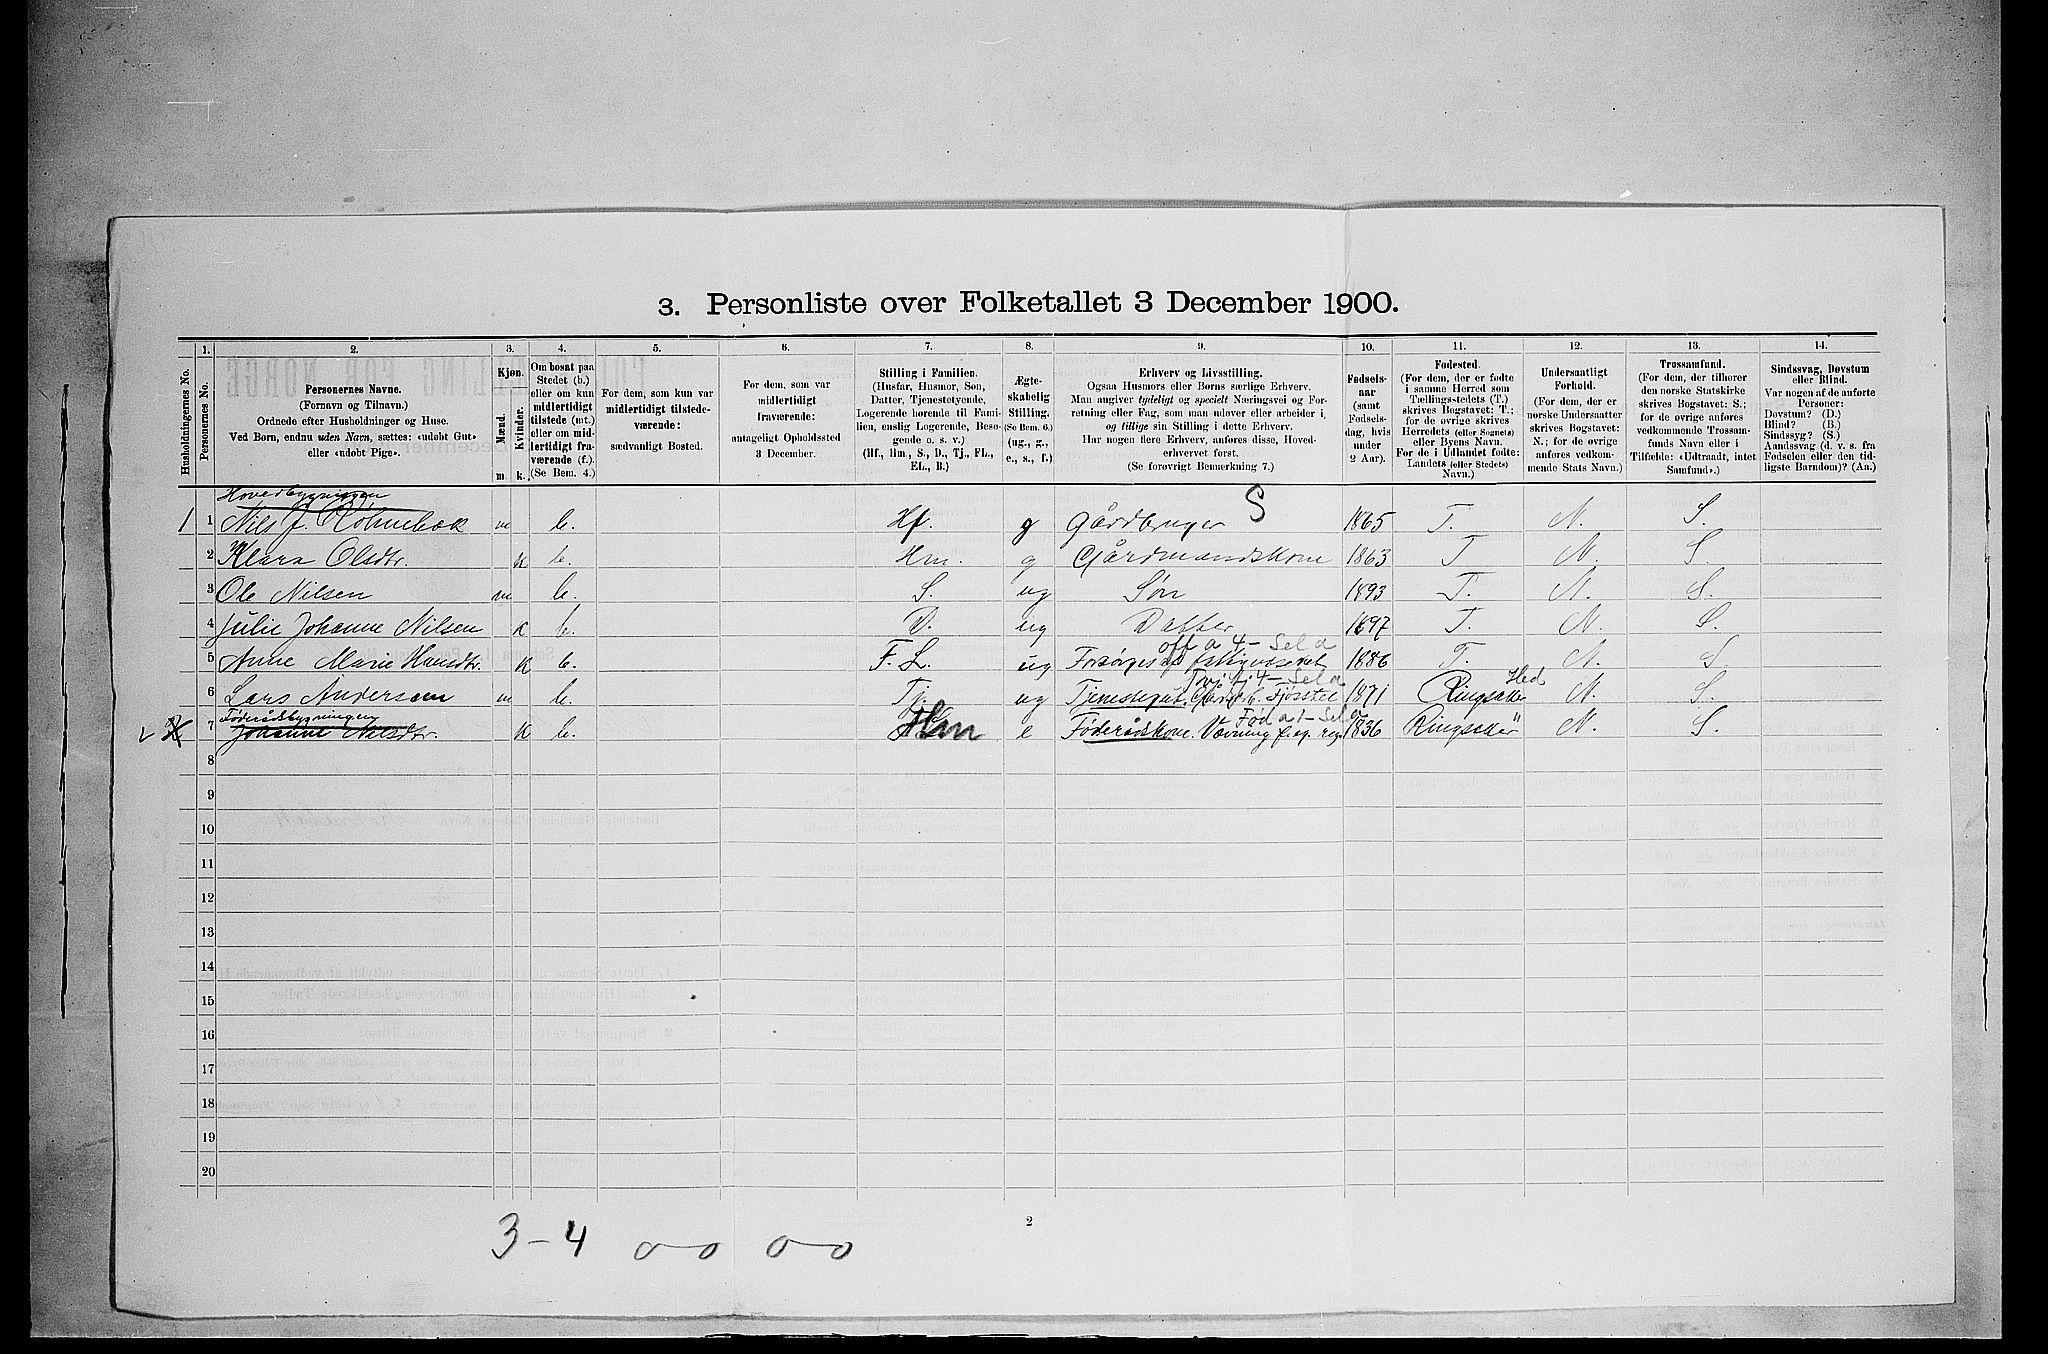 3. Personliste over Folketallet 3 December 1900.
1. 2. 3. 4. 5. 6. 7. 8. 9. 10. 11. 12. 13. 14.
Husholdningernes No.
Personernes No.
Personernes Navne.
(Fornavn og Tilnavn.)
Ordnede efter Husholdninger og Huse.
Ved Børn, endnu uden Navn, sættes: «udøbt Gut»
eller «udøbt Pige».
Kjøn.
Mænd.
Kvinder.
m. k.
Om bosat paa
Stedet (b.)
eller om kun
midlertidigt
tilstede (mt.)
eller om mid-
lertidigt fra-
værende (f.).
(Se Bem. 4.)
For dem, som kun var
midlertidigt tilstede-
værende:
sædvanligt Bosted.
For dem, som var
midlertidigt
fraværende:
antageligt Opholdssted
3 December.
Stilling i Familien.
(Husfar, Husmor, Søn,
Datter, Tjenestetyende,
Logerende hørende til Fami-
lien, enslig Logerende, Besø-
gende o. s. v.)
(Hf., Hm., S., D., Tj., FL.,
EL., B.)
Ægte-
skabelig
Stilling.
(Se Bem. 6.)
(ug., g.,
e., s., f.)
Erhverv og Livsstilling.
Ogsaa Husmors eller Børns særlige Erhverv.
Man angiver tydeligt og specielt Næringsvei og For-
retning eller Fag, som man udøver eller arbeider i,
og tillige sin Stilling i dette Erhverv.
Har nogen flere Erhverv, anføres disse, Hoved-
erhvervet først.
(Se forøvrigt Bemerkning 7.)
Fødsels-
aar
(samt
Fødsels-
dag, hvis
under
2 Aar).
Fødested.
(For dem, der er fødte
i samme Herred som
Tællings-stedets (T.)
skrives Bogstavet: T.;
for de øvrige skrives
Herredets (eller Sognets)
eller Byens Navn.
For de i Udlandet fødte:
Landets (eller Stedets)
Navn.)
Undersaatligt
Forhold.
(For dem, der er
norske Undersaatter
skrives Bogstavet:
N.; for de øvrige
anføres vedkom-
mende Stats Navn.)
Trossamfund.
(For dem, der tilhører
den norske Statskirke
skrives Bogstavet: S.;
for de øvrige anføres
vedkommende Trossam-
funds Navn eller i
Tilfælde: «Udtraadt, intet
Samfund».)
Sindssvag, Døvstum
eller Blind.
Var nogen af de anførte
Personer:
Døvstum? (D.)
Blind? (B.)
Sindssyg? (S.)
Aandssvag (d. v. s. fra
Fødselen eller den tid-
ligste Barndom)? (Aa.)
Hovedbygningen S
1 1 Nils J. m b. Hf. g Gårdbruger 1865 T. N. S.
2 Klara Olsdtr. k b. Hm. g Gårdmandskone 1863 T N. S.
3 Ole Nilsen m b. S. ug Søn 1893 T. N. S.
4 Julie Johanne Nilsen k b. D. ug Datter 1897 T. N. S.
off a 4 - Sel a
5 Anne Marie k b. F. L. ug Forsørges af fattigvæsenet 1886 T. N. S
4 - Sel a Hed
6 Lars Andersen m b. Tj. ug Tjenestegut. 1871 Ringsaker N. S.
Føderådsbygningen Fød a 1 - Sel a "
2 7 Johanne Nilsdtr. k b. Hm e Føderådskone. Vævning f. eg. reg. 1836 Ringsaker N. S.
8
9
10
11
12
13
14
15
16
17
18
19
20
2
3 - 4 0 - 0 0 - 0